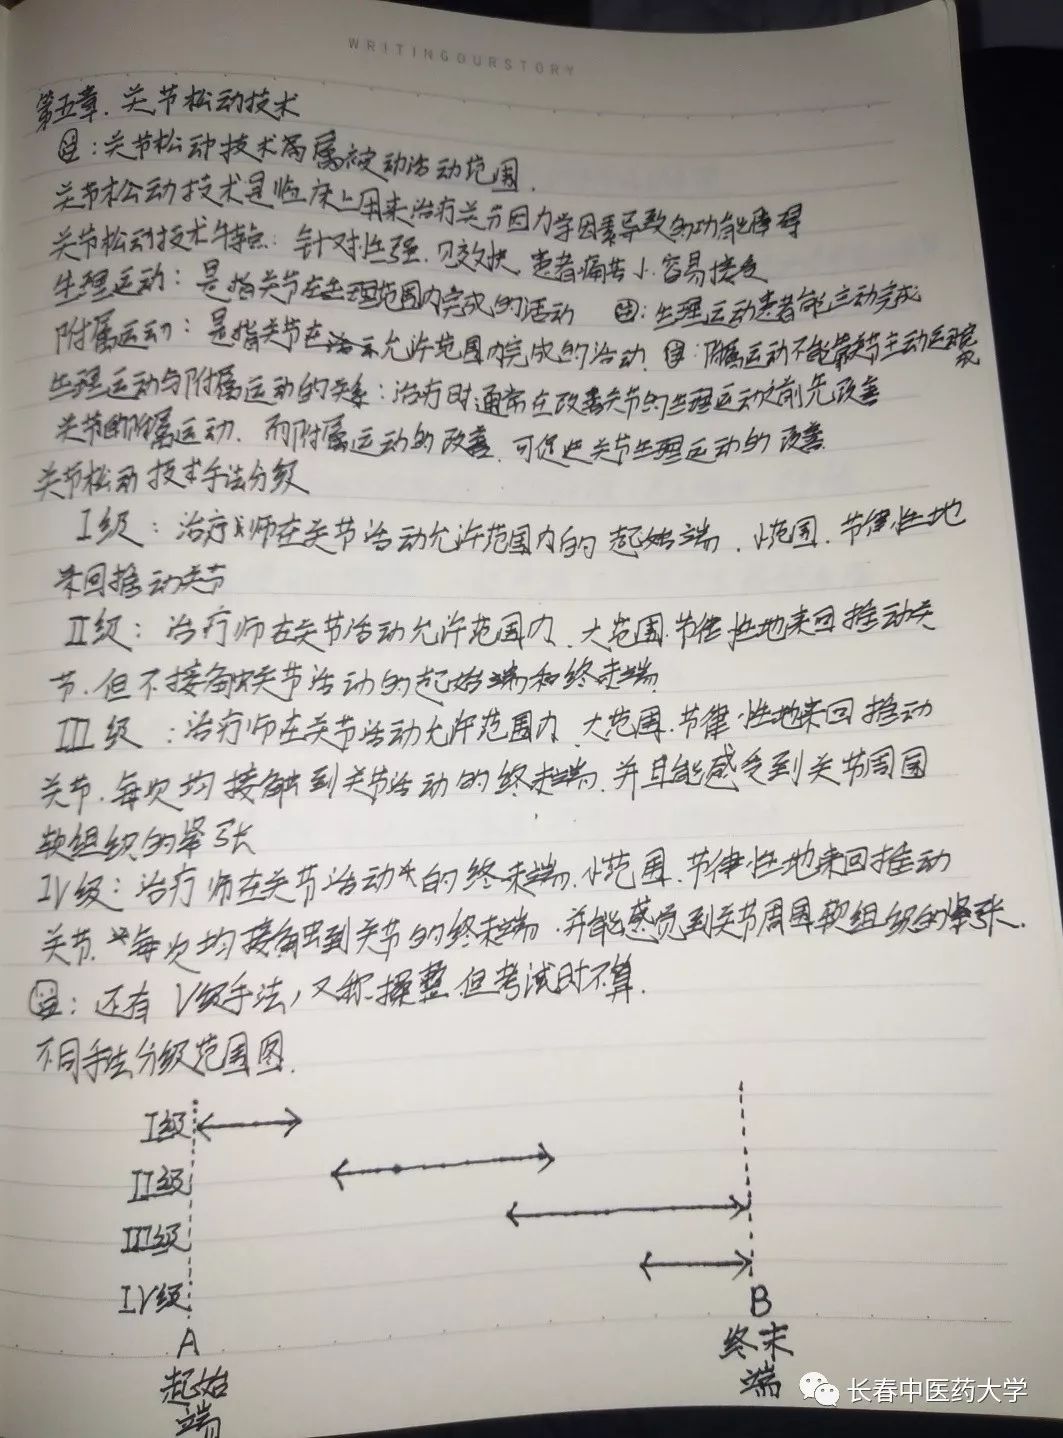 WRITINGOURSTORY
第五章.关节松动技术
注:关节松动技术属被动活动范围.
关节松动技术是临床上用来治疗关节因力学因素导致的功能障碍
关节松动技术特点:针对性强.见效快,患者痛苦小.容易接受
生理运动:是指关节在生理范围内完成的活动 注:生理运动患者能主动完成
附属运动:是指关节在允许范围内完成的活动.注:附属运动不能主动运动
生理运动与附属运动的关系:治疗时通常在改善关节的生理运动之前先改善
关节的附属运动.而附属运动的改善,可促进关节生理运动的改善
关节松动技术手法分级
I级:治疗师在关节活动允许范围内的起始端.小范围.节律性地
来回推动关节
II级:治疗师在关节活动允许范围内、大范围.节律性地来回推动关
节.但不接触关节活动的起始端和终末端
III级:治疗师在关节活动允许范围内、大范围.节律性地来回推动
关节.每次均接触到关节活动的终末端.并且能感受到关节周围
软组织的紧张
IV级:治疗师在关节活动的终末端.小范围.节律性地来回推动
关节.每次均接触到关节的终末端.并能感觉到关节周围软组织的紧张.
注:还有V级手法,又称操整.但考试时不算.
不同手法分级范围图.
I级
II级
III级
IV级
A
起始
端
B
终末
端
长春中医药大学